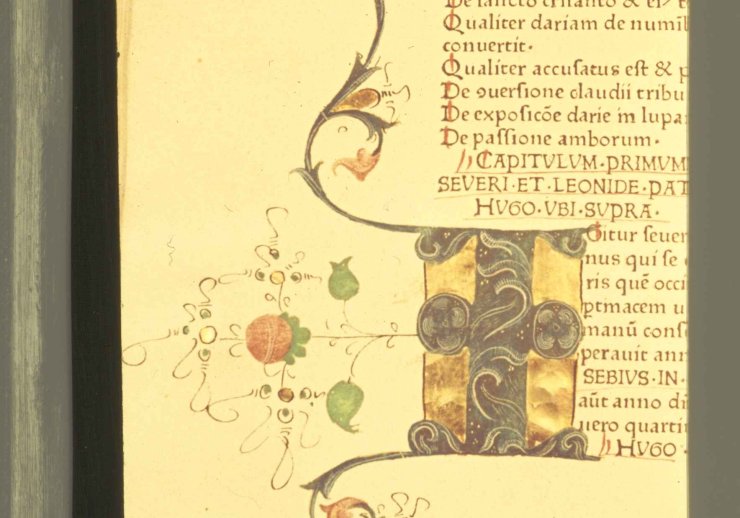 De sancto crisanto &
Qualiter dariam de numīb
conuertit·
Qualiter accusatus est & p
De ꝯuersione claudii tribu
De exposicōe darie in lupa
De passione amborum·
CAPITVLVM·PRIMVM
SEVERI·ET·LEONIDE·PAT
HVGO·VBI·SVPRA·
IGitur seuer
nus qui se
ris quē occi
ptmacem u
manū cons
perauit ann
SEBIVS·IN·
aūt anno
uero quarti
HVGO